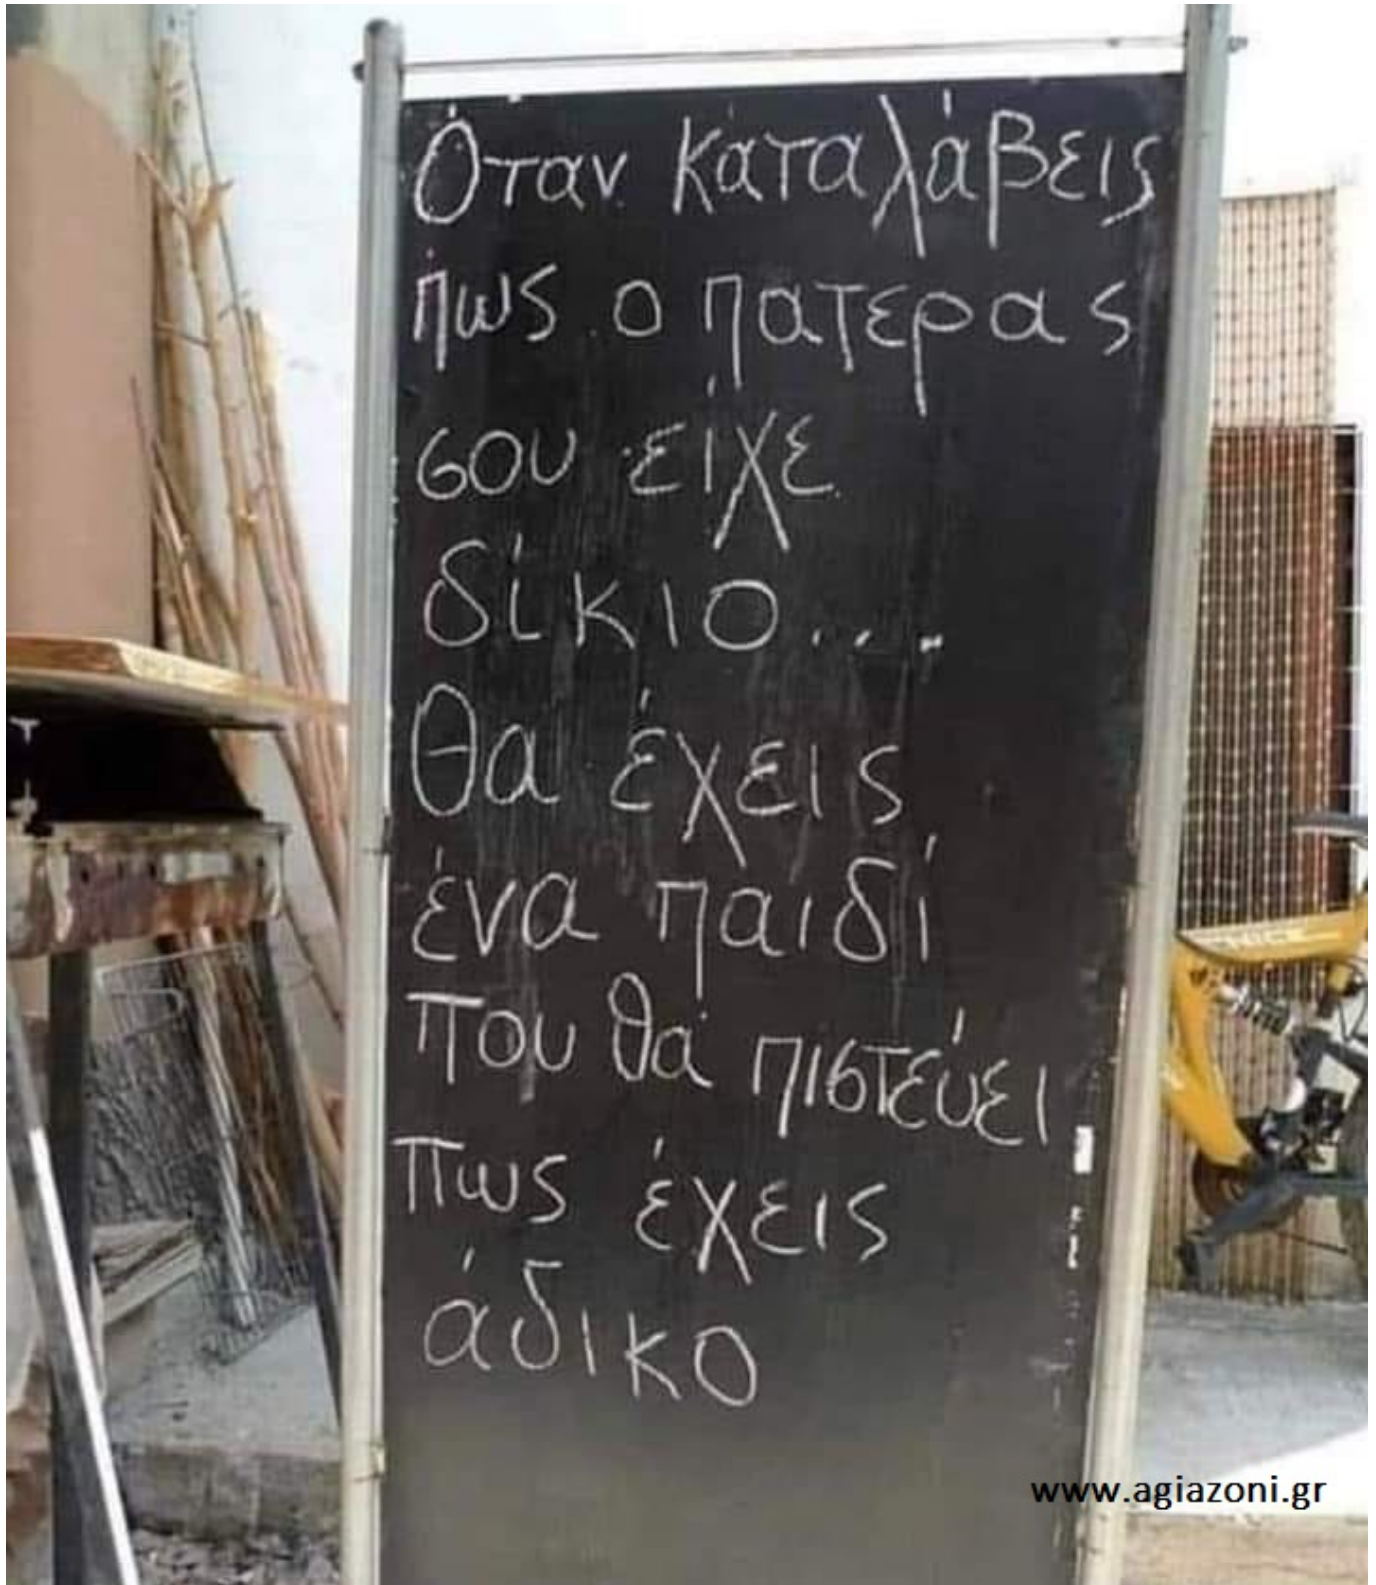 Όταν καταλάβεις
πως ο πατερας
σου είχε
δίκιο...
Θα έχεις
ένα παιδί
που θα πιστεύει
πως έχεις
άδικο
www.agiazoni.gr